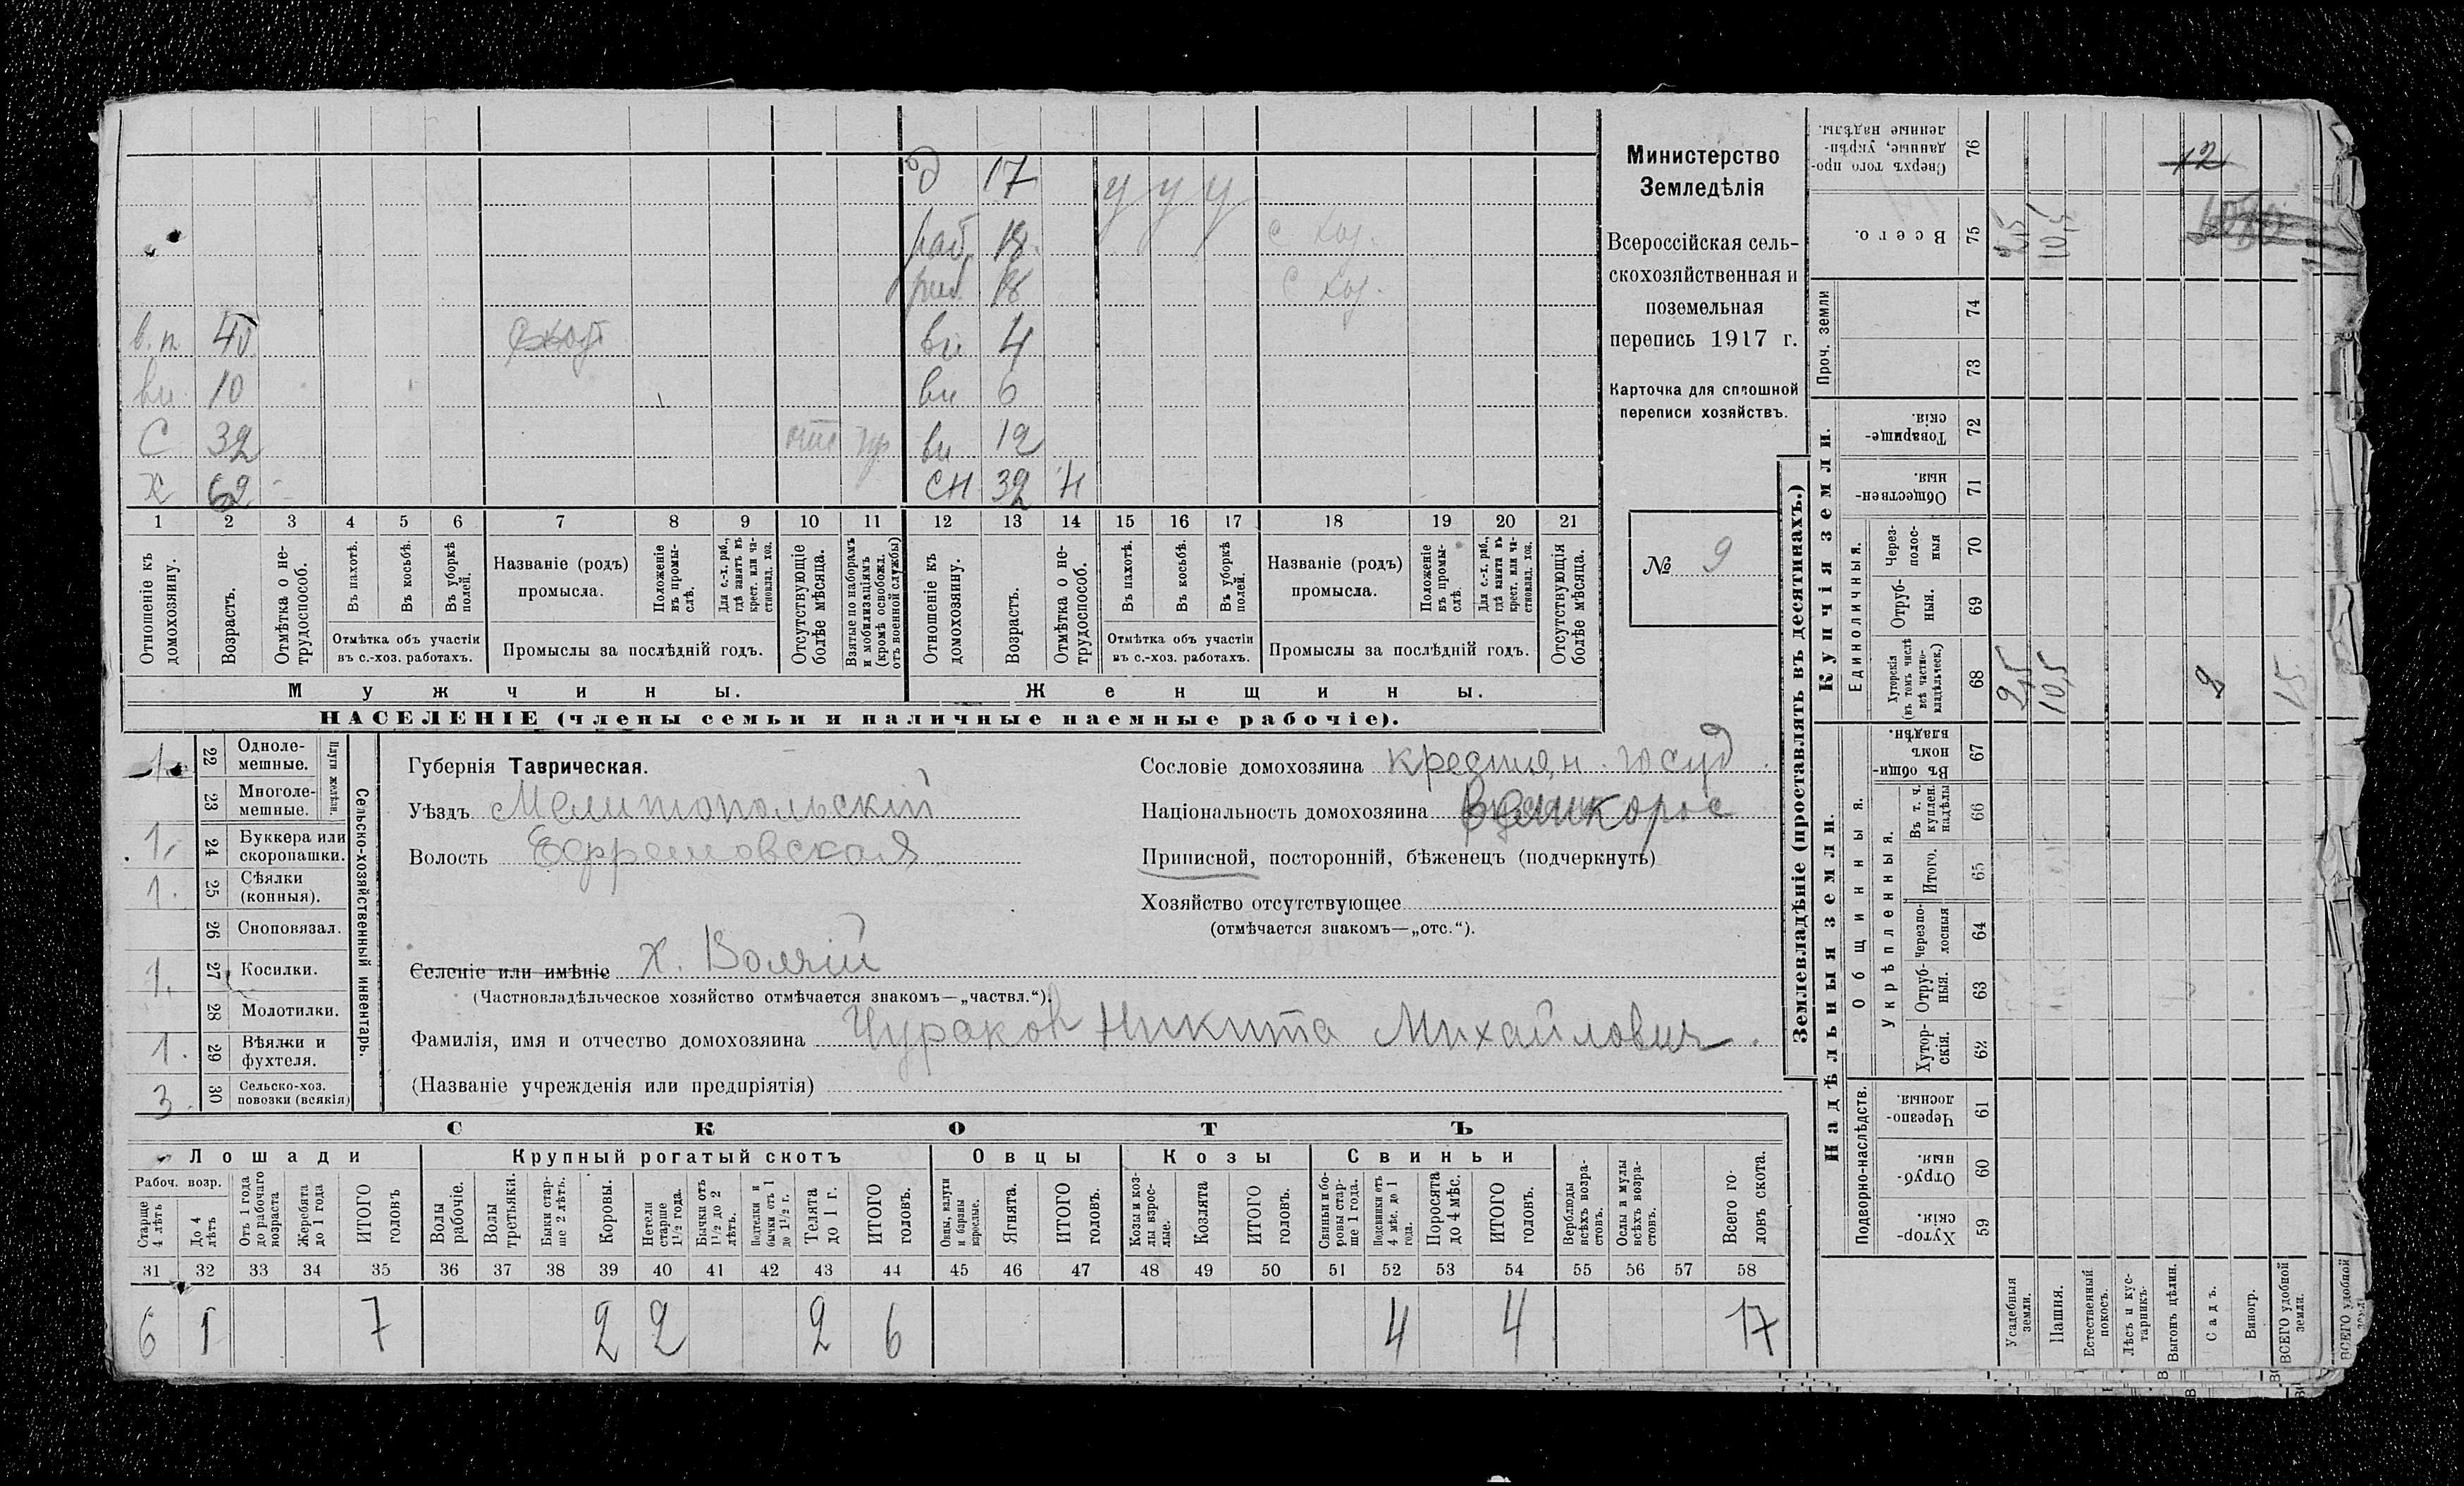 Министерство
Земледѣлія
Всероссійская сель-
скохозяйственная и
поземельная
перепись 1917 г.
Карточка для сплошной
переписи хозяйствъ.
№ 9
д 17 у у у
раб 18. с хоз.
18 с хоз.
в. п 40 вн 4
вн 10 вн 6
С 32 отс вн 12
Х 62 сн 32 н
1 2 3 4 5 6 7 8 9 10 11 12 13 14 15 16 17 18 19 20 21
Отношеніе къ домохозяину.
Возрастъ.
Отмѣтка о не-трудоспособ.
Въ пахотѣ.
Въ косьбѣ.
Въ уборкѣ полей.
Отмѣтка объ участіи въ с.-хоз. работахъ.
Названіе (родъ) промысла.
Положеніе въ промы-слѣ.
Для с.-х. раб., гдѣ занятъ въ крест. или ча-стновлад. хоз.
Промыслы за послѣдній годъ.
Отсутствующіе болѣе мѣсяца.
Взятые по наборамъ и мобилизаціямъ (кромѣ освобожд. отъ военной службы)
Отношеніе къ домохозяину.
Возрастъ.
Отмѣтка о не-трудоспособ.
Въ пахотѣ.
Въ косьбѣ.
Въ уборкѣ полей.
Отмѣтка объ участіи въ с.-хоз. работахъ.
Названіе (родъ) промысла.
Положеніе въ промы-слѣ.
Для с.-х. раб., гдѣ занята въ крест. или ча-стновлад. хоз.
Промыслы за послѣдній годъ.
Отсутствующія болѣе мѣсяца.
Мужчины. Женщины.
НАСЕЛЕНІЕ (члены семьи и наличные наемные рабочіе).
Сельско-хозяйственный инвентарь.
Плуги желѣзн.
1 22 Одноле-мешные.
23 Многоле-мешные.
1 24 Буккера или скоропашки.
1. 25 Сѣялки (конныя).
26 Сноповязал.
1. 27 Косилки.
28 Молотилки.
1. 29 Вѣялки и фухтеля.
3. 30 Сельско-хоз. повозки (всякія)
Губернія Таврическая.
Уѣздъ Мелитопольскій
Волость Ефремовская
Селеніе или имѣніе х. Волчій
(Частновладѣльческое хозяйство отмѣчается знакомъ—„частвл.“).
Фамилія, имя и отчество домохозяина Чураков Никита Михайлович.
(Названіе учрежденія или предпріятія)
Сословіе домохозяина крестьян. госуд.
Національность домохозяина Великорос
Приписной, посторонній, бѣженецъ (подчеркнуть)
Хозяйство отсутствующее
(отмѣчается знакомъ—„отс.“).
СКОТЪ
Лошади Крупный рогатый скотъ Овцы Козы Свиньи
Рабоч. возр.
Старше 4 лѣтъ
До 4 лѣтъ
Отъ 1 года до рабочаго возраста
Жеребята до 1 года
ИТОГО головъ
Волы рабочіе.
Волы третьяки.
Быки стар-ше 2 лѣтъ.
Коровы.
Нетели старше 1½ года.
Бычки отъ 1½ до 2 лѣтъ.
Подтелки и бычки отъ 1 до 1½ г.
Телята до 1 г.
ИТОГО головъ.
Овцы, валухи и бараны взрослые.
Ягнята.
ИТОГО головъ.
Козы и коз-лы взрос-лые.
Козлята
ИТОГО головъ.
Свиньи и бо-ровы стар-ше 1 года.
Подсвинки отъ 4 мѣс. до 1 года.
Поросята до 4 мѣс.
ИТОГО головъ.
Верблюды всѣхъ возра-стовъ.
Ослы и мулы всѣхъ возра-стовъ.
Всего го-ловъ скота.
31 32 33 34 35 36 37 38 39 40 41 42 43 44 45 46 47 48 49 50 51 52 53 54 55 56 57 58
6 1 7 2 2 2 6 4 4 17
Землевладѣніе (проставлять въ десятинахъ.)
Купчія земли.
Надѣльныя земли.
Сверхъ того про-данные, укрѣп-ленные надѣлы. 76
Всего. 75
Проч. земли 74 73
Товарище-скія. 72
Обществен-ныя. 71
Единоличныя.
Через-полос-ныя 70
Отруб-ныя. 69
Хуторскія (въ томъ числѣ всѣ частно-владѣльческ.) 68
Общинныя.
Въ общи-номъ владѣн. 67
Укрѣпленныя.
Въ т. ч. куплен. надѣлы 66
Итого. 65
Черезпо-лосныя 64
Отруб-ныя. 63
Хутор-скія. 62
Подворно-наслѣдств.
Черезпо-лосныя. 61
Отруб-ныя. 60
Хутор-скія. 59
Усадебныя земли.
Пашня.
Естественный покосъ.
Лѣсъ и кус-тарникъ.
Выгонъ цѣлин.
Садъ.
Виногр.
ВСЕГО удобной земли.
ВСЕГО удобной
2,5 10,5 12
2,5 10,5 2 15